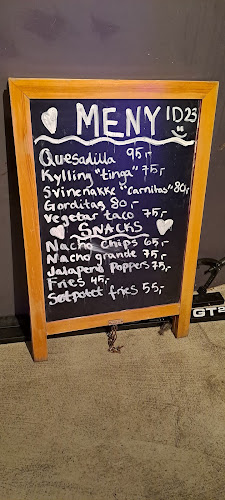 MENY ID23
Quesadilla 95,-
Kylling "tinga" 75,-
Svinenakke "carnitas" 80,-
Gorditas 80,-
Vegetar taco 75,-
SNACKS
Nacho Chips 65,-
Nacho grande 75,-
Jalapeno Poppers 75,-
Fries 45,-
Søtpotet fries 55,-
GT2